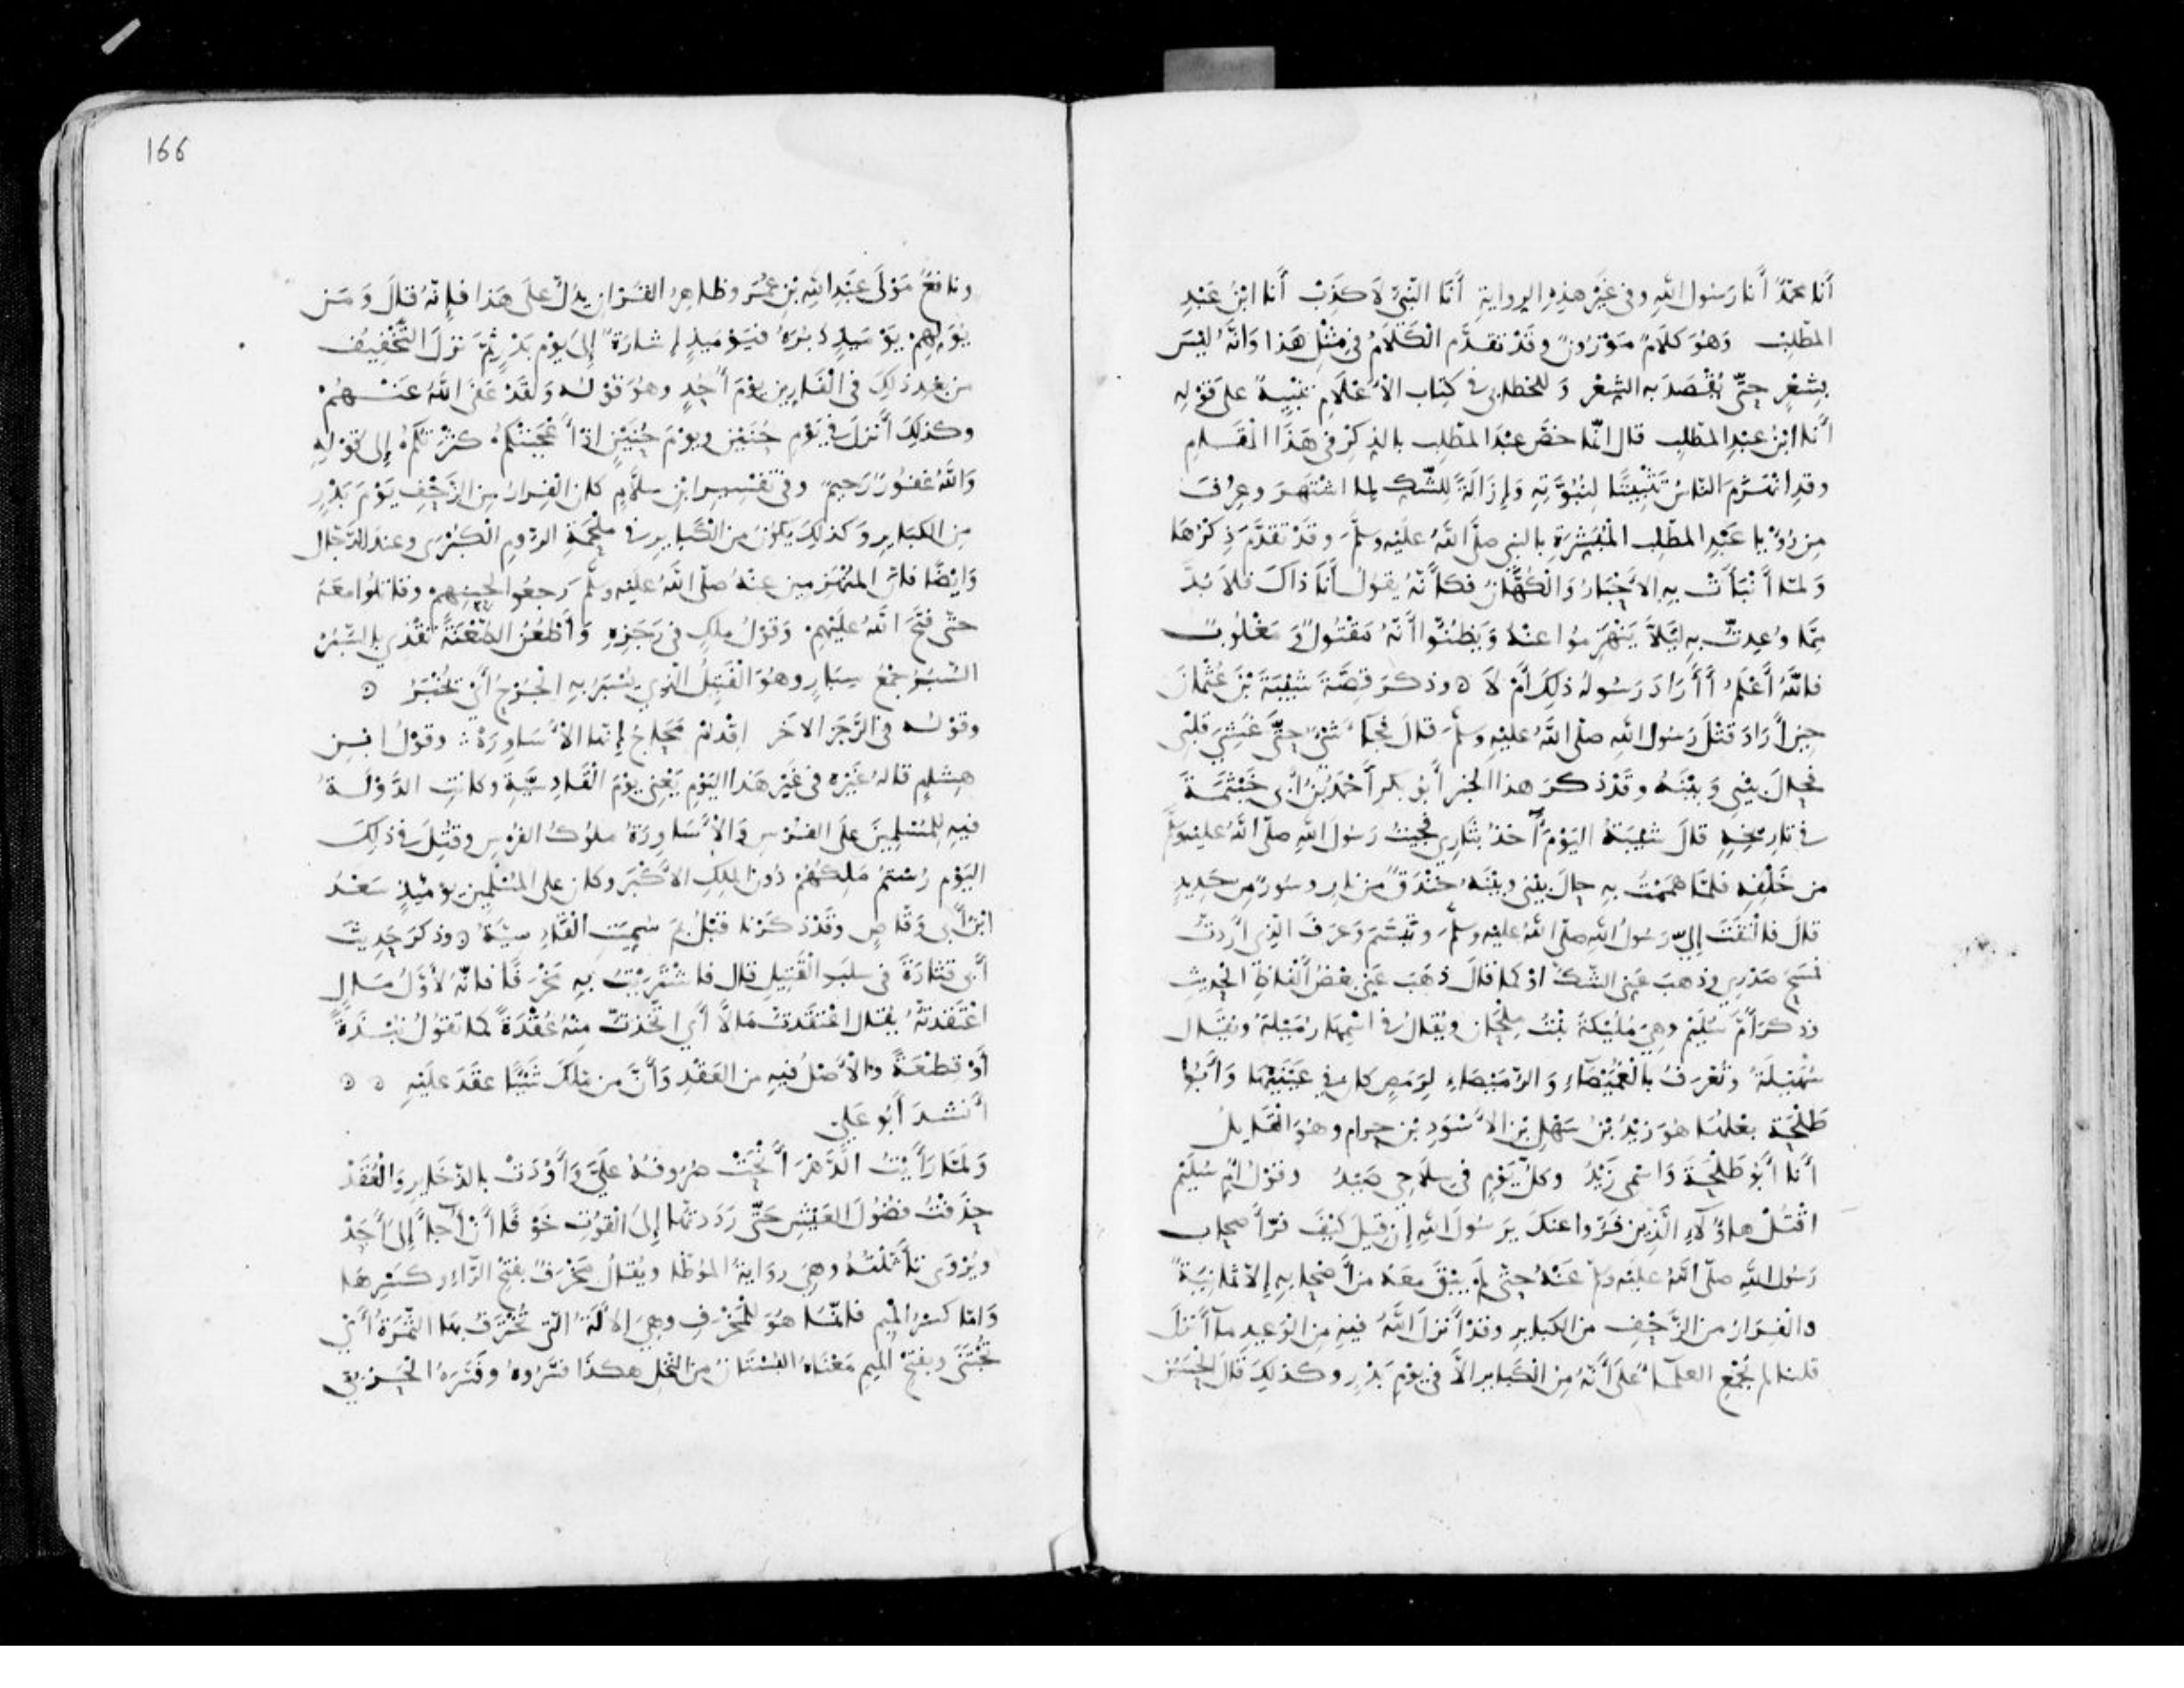 أَنَا محمّدٌ أَنَا رَسُول اللهِ وفى غَيْرِ هذِهِ الرِوايةِ أَنَا النَّبِيُّ لَا كَذِبْ أَنَا ابْنُ عَبْدِ
المطّلِبْ وَهُوَ كلَامٌ مَوْزُونٌ وقَدْ تقدَّم الْكَلَامُ فى مِثْلِ هَذا وَانَّهُ لَيْسَ
بِشِعْرٍ حتَّى يُقْصَدَ به الشِعْر وَ للخطابى فى كتاب الأَعْلَامِ تنبيهٌ على قَوْلِهِ
أنا ابْنُ عبْدِ المطّلِب قال انّما خصَّ عبْدَ المطّلِب بالذِكْرِ فى هَذَا الْمَقَامِ
وقدِ انْهَزَمَ النّاسُ تَثْبِيتًا لِنُبُوَّتِهِ وَإِزَالَةً لِلشّكِ لما اشْتهَرَ وعُرِفَ
مِن رُؤْيا عَبْدِ المطّلِب المُبَشِّرَةِ بالنبى صلّى اللهُ عليْهِ وسَلَّمَ وقَدْ تقدَّمَ ذِكْرُهَا
وَلمَا أَنْبَأَتْ بِهِ الأَحْبَارُ وَالْكُهَّانُ فكأنّهُ يقولُ أَنَا ذاكَ فلَا بُدَّ
مِمَّا وُعِدتُّ بِهِ لِئَلَّا يَنْهَزِمُوا عنهُ وَيَظُنُّوا أَنَّهُ مَقْتُولٌ وَ مَغْلُوبٌ
فاللهُ أَعْلَمُ أَأَرَادَ رَسُولُهُ ذلِكَ أَمْ لَا ۞ وذكرَ قِصَّةَ شَيْبَةَ بْنِ عُثْمَانَ
حِينَ أَرَادَ قتْلَ رَسُولِ اللهِ صلّى اللهُ عليْهِ وسلَّمَ قالَ فجَاءَ شَىْءٌ حتَّى غَشِىَ قلْبى
فحالَ بيْنِى وَ بيْنَهُ وقَدْ ذكرَ هذا الخبرَ أَبُو بكر أَحْمَدُ بْنُ أَبِى خَيْثَمَةَ
فى تارِيخِهِ قالَ شَيْبَةُ اليَوْمَ آخُذُ بثَأْرِى فجِئتُ رَسُولَ اللهِ صلّى اللهُ عليْهِ وسلّم
من خَلْفِهِ فلمّا هَمَمْتُ بِهِ حالَ بيْنِى وبيْنَهُ خَنْدَقٌ من نارٍ وسُورٌ مِن حَدِيدٍ
قالَ فالْتَفَتَ إِلَىَّ رَسُولُ اللهِ صلّى اللهُ عليْهِ وسلَّمَ وتَبَسَّمَ وَعَرَفَ الّذِى أَرَدتُّ
فمَسَحَ صَدْرِى وذهبَ عَنِى الشّكُّ اوْ كما قالَ ذهَبَ عَنِى بعْضُ أَلْفاظِ الْحدِيثِ
وذكرَ أُمَّ سُلَيْمٍ وهِىَ مُلَيْكَةُ بنْتُ مِلْحَانَ ويُقالُ فى اسْمِهَا رُمَيْلَةُ ويُقَال
سُهَيْلَةُ وتُعْرَفُ بالْغُمَيْصَاءِ وَ الرُّمَيْصَاءِ لِرَمَصٍ كان فى عَيْنَيْهَا وَ أَبُو
طَلْحَةَ بعْلُهَا هُوَ زَيْدُ بْنُ سَهْلِ بْنِ الأَسْوَدِ بْنِ حرامٍ وهُوَ الْقَايِلُ
أَنَا أَبُو طَلْحَةَ وَاسْمِى زَيْدُ وكلَّ يَوْمٍ فى سِلَاحِى صَيْدُ وقوْلُ أُمِّ سُلَيْمٍ
اقْتُلْ هاؤلَاءِ الَّذِينَ فَرُّوا عنكَ يَرَسُولَ اللهِ إِن قيلَ كيْفَ فرَّ أَصحاب
رَسُول اللهِ صلّى اللهُ عليْهِ وسلّم عَنْهُ حتّى لَمْ يبْقَ معَهُ من أَصْحابِهِ إِلَّا ثمانِيَةٌ
والفِرَارُ من الزَّحْفِ من الكبايِرِ وقدْ أَنزلَ اللهُ فيهِ مِن الوَعِيدِ ما أَنزلَ
قلنا لم تُجْمِعِ العلَمَاءُ علَى أَنَّهُ مِن الْكبايِرِ الَّا فى يوْمِ بَدْرٍ وكذلِكَ قالَ الْحَسَنُ
166
ونافعٌ مَوْلَى عَبْدِ اللهِ بْنِ عُمَرَ وظاهِرُ القُرْآنِ يدُلُّ علَى هَذا فإِنّهُ قالَ وَمَن
يُوَلِّهِمْ يَوْمَيِذٍ دُبُرَهُ فيَوْمَيِذٍ إِشارَةٌ إِلَى يوْمِ بَدْرٍ ثُمَّ نزلَ التَّخْفِيفُ
من بعْدِ ذلِكَ فى الْفَارِينَ يوْمَ أُحُدٍ وهُوَ قوْلُه وَلقَدْ عَفَى اللهُ عَنْهُمْ
وكذلِكَ أَنزلَ فى يَوْمِ حُنَيْنٍ ويوْمَ حُنَيْنٍ اذْ أَعْجَبَتْكُمْ كثْرَتُكُمْ إِلى قوْلِهِ
وَاللهُ غفُورٌ رَحِيمٌ وفى تفْسِيرِ ابْنِ سلَّامٍ كان الفِرارُ مِن الزَحْفِ يَوْمَ بَدْرٍ
مِن الكبَايِرِ وَكذلِكَ يكُونُ مِن الكبايِرِ فى مَلْحَمَةِ الرّومِ الْكُبْرَى وعندَ الدّجّال
وَايْضًا فانَّ المُنْهَزِمِين عنْهُ صلّى اللهُ عليْهِ وسلّم رَجعُوا لحِينِهِمْ وقاتلُوا معَهُ
حتّى فتَحَ اللهُ عليْهِمْ وَقوْلُ مالِكٍ فى رَجَزِهِ وَأَطْعُنُ الطّعْنَةَ تقْذِى بالسُّبُرْ
السُّبُرُ جمْعُ سِبَارٍ وهُوَ الْفَتِيلُ الّذِى يُسْبَرُ بِهِ الْجُرْحُ أَىْ يُخْبَرُ ۞
وقوْلُه فى الرَّجَزِ الاخَرِ اقْدُمْ مَحَاجُ إِنّها الأَسَاوِرَهْ ؞ وقوْلُ ابْنِ
هِشامٍ قالهُ غيْرُهُ فى غيْرِ هَذا اليَوْمِ يَعْنِى يوْمَ الْقَادِسِيَّةِ وكانتِ الدَّوْلَةُ
فيهِ لِلْمُسْلِمِينَ علَى الفُرْسِ وَالأَسَاوِرَةُ ملُوكُ الفُرْسِ وقُتِلَ فى ذلِكَ
اليَوْمِ رُسْتُمُ مَلِكُهُمْ دُونَ المَلِكِ الأَكْبَرِ وكان على المُسْلِمِينَ يوْمَيِذٍ سَعْدُ
ابْنُ أَبى وَقّاصٍ وقَدْ ذكَرْنا قبْلُ بِمَ سُمِّيَتِ القَادِسِيَّةُ ۞ وذكرَ حَدِيثَ
أَبى قتادَةَ فى سلَبِ القَتِيلِ قال فاشْتَرَيْتُ بِهِ مَخْرَفًا فانّهُ لَأَوَّلُ مَالٍ
اعْتَقدتُهُ يُقال اعْتَقَدتُ مَالًا أَى اتَّخَذتُّ مِنْهُ عُقْدَةً كما تقُولُ نُبْذَةً
أَوْ قِطْعَةً والأَصْلُ فيهِ من العَقْدِ وَأَنَّ من مَلَكَ شَيْئًا عقَدَ عَلَيْهِ ۞ ۞
أَنشدَ أَبُو عَلِىٍّ
وَلَمّا رَأَيْتُ الدَّهْرَ أَنْحَتْ صُرُوفُهُ علَىَّ وَأَوْدَتْ بالذّخَايِرِ وَالْعُقَدْ
حذَفْتُ فُضُولَ العَيْشِ حَتَّى رَدَدتُها إِلَى الْقوتِ خَوْفًا أَنْ أُجَاءَ إِلَى أَحَدْ
ويُرْوَى تأَثَّلْتُهُ وهِىَ رِوَايةُ المُوَطَّا ويُقالُ مَخْرَفٌ بفتْحِ الرَّاءِ وكسْرِهَا
وَامّا كسْرُ المِيمِ فانّمَا هُوَ لِلْمِخْرَفِ وهِىَ الآلَةُ الّتى تُخْتَرَفُ بهَا الثَّمَرَةُ أَىْ
تُجْتَنَى وبفتْحِ المِيمِ مَعْنَاهُ البُسْتَانُ من النّخْلِ هكذَا فسَّرُوهُ وفَسَّرَهُ الْحَرْبِى